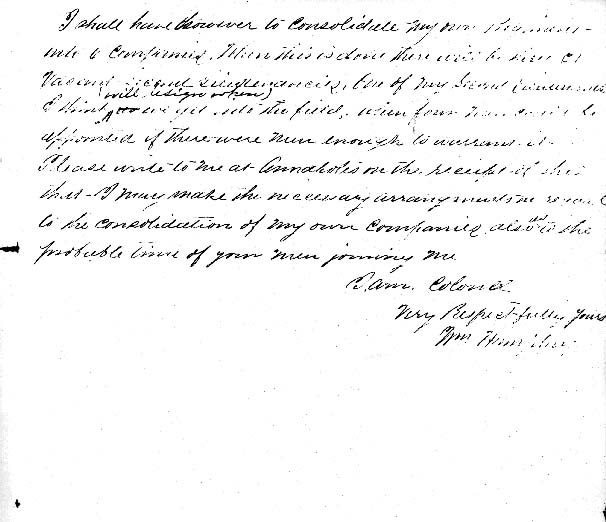 I shall have however to consolidate my own Regiment
into 6 Companies. When this is done there will be
Vacant Second Lieutenancies. One of my Second Lieutenants
(will resign when)
I think we get into the field, when four
appointed if there were men enough to warrant it
Please write to me at Annapolis on the receipt of this
that I may make the necessary arrangements in regard
to the consolidation of my own Companies, also as to the
probable time of your men joining me
I am, Colonel
Very Respectfully Yours
Wm Humphrey